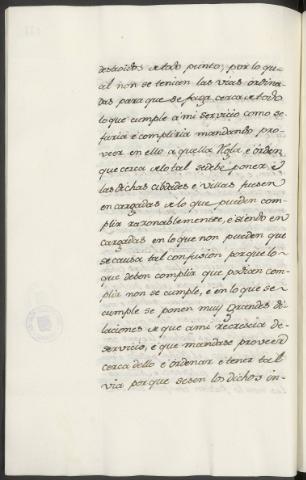 destroidos de todo punto, por lo qu-
al non se tenian las vias ordina-
das para que se faga cerca de todo
lo que cumple a mi servicio como se
faria e compliria mandando pro-
veer en ello aquella regla e orden
que cerca de lo tal se debe poner, e
las dichas cibdades e villas fuesen
encargadas de lo que pueden com-
plir razonablemente, e siendo en
cargadas en lo que non pueden que
se causa tal confusion porque lo-
que deben complir que podrian com-
plir non se cumple, e en lo que se
cumple se ponen muy grandes di-
laciones de que a mi recrescia de-
servicio, e que mandase proveer
cerca dello e ordenar e tener tal
via porque sesen los dichos in-